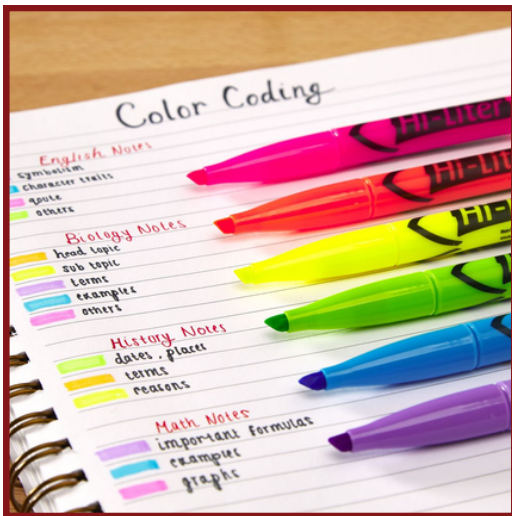 Color Coding
English Notes
symbolism
character traits
qoute
others
Biology Notes
head topic
sub topic
terms
examples
others
History Notes
dates, places
terms
reasons
Math Notes
important formulas
examples
graphs
Hi-Liter
Hi-Lit
Hi-